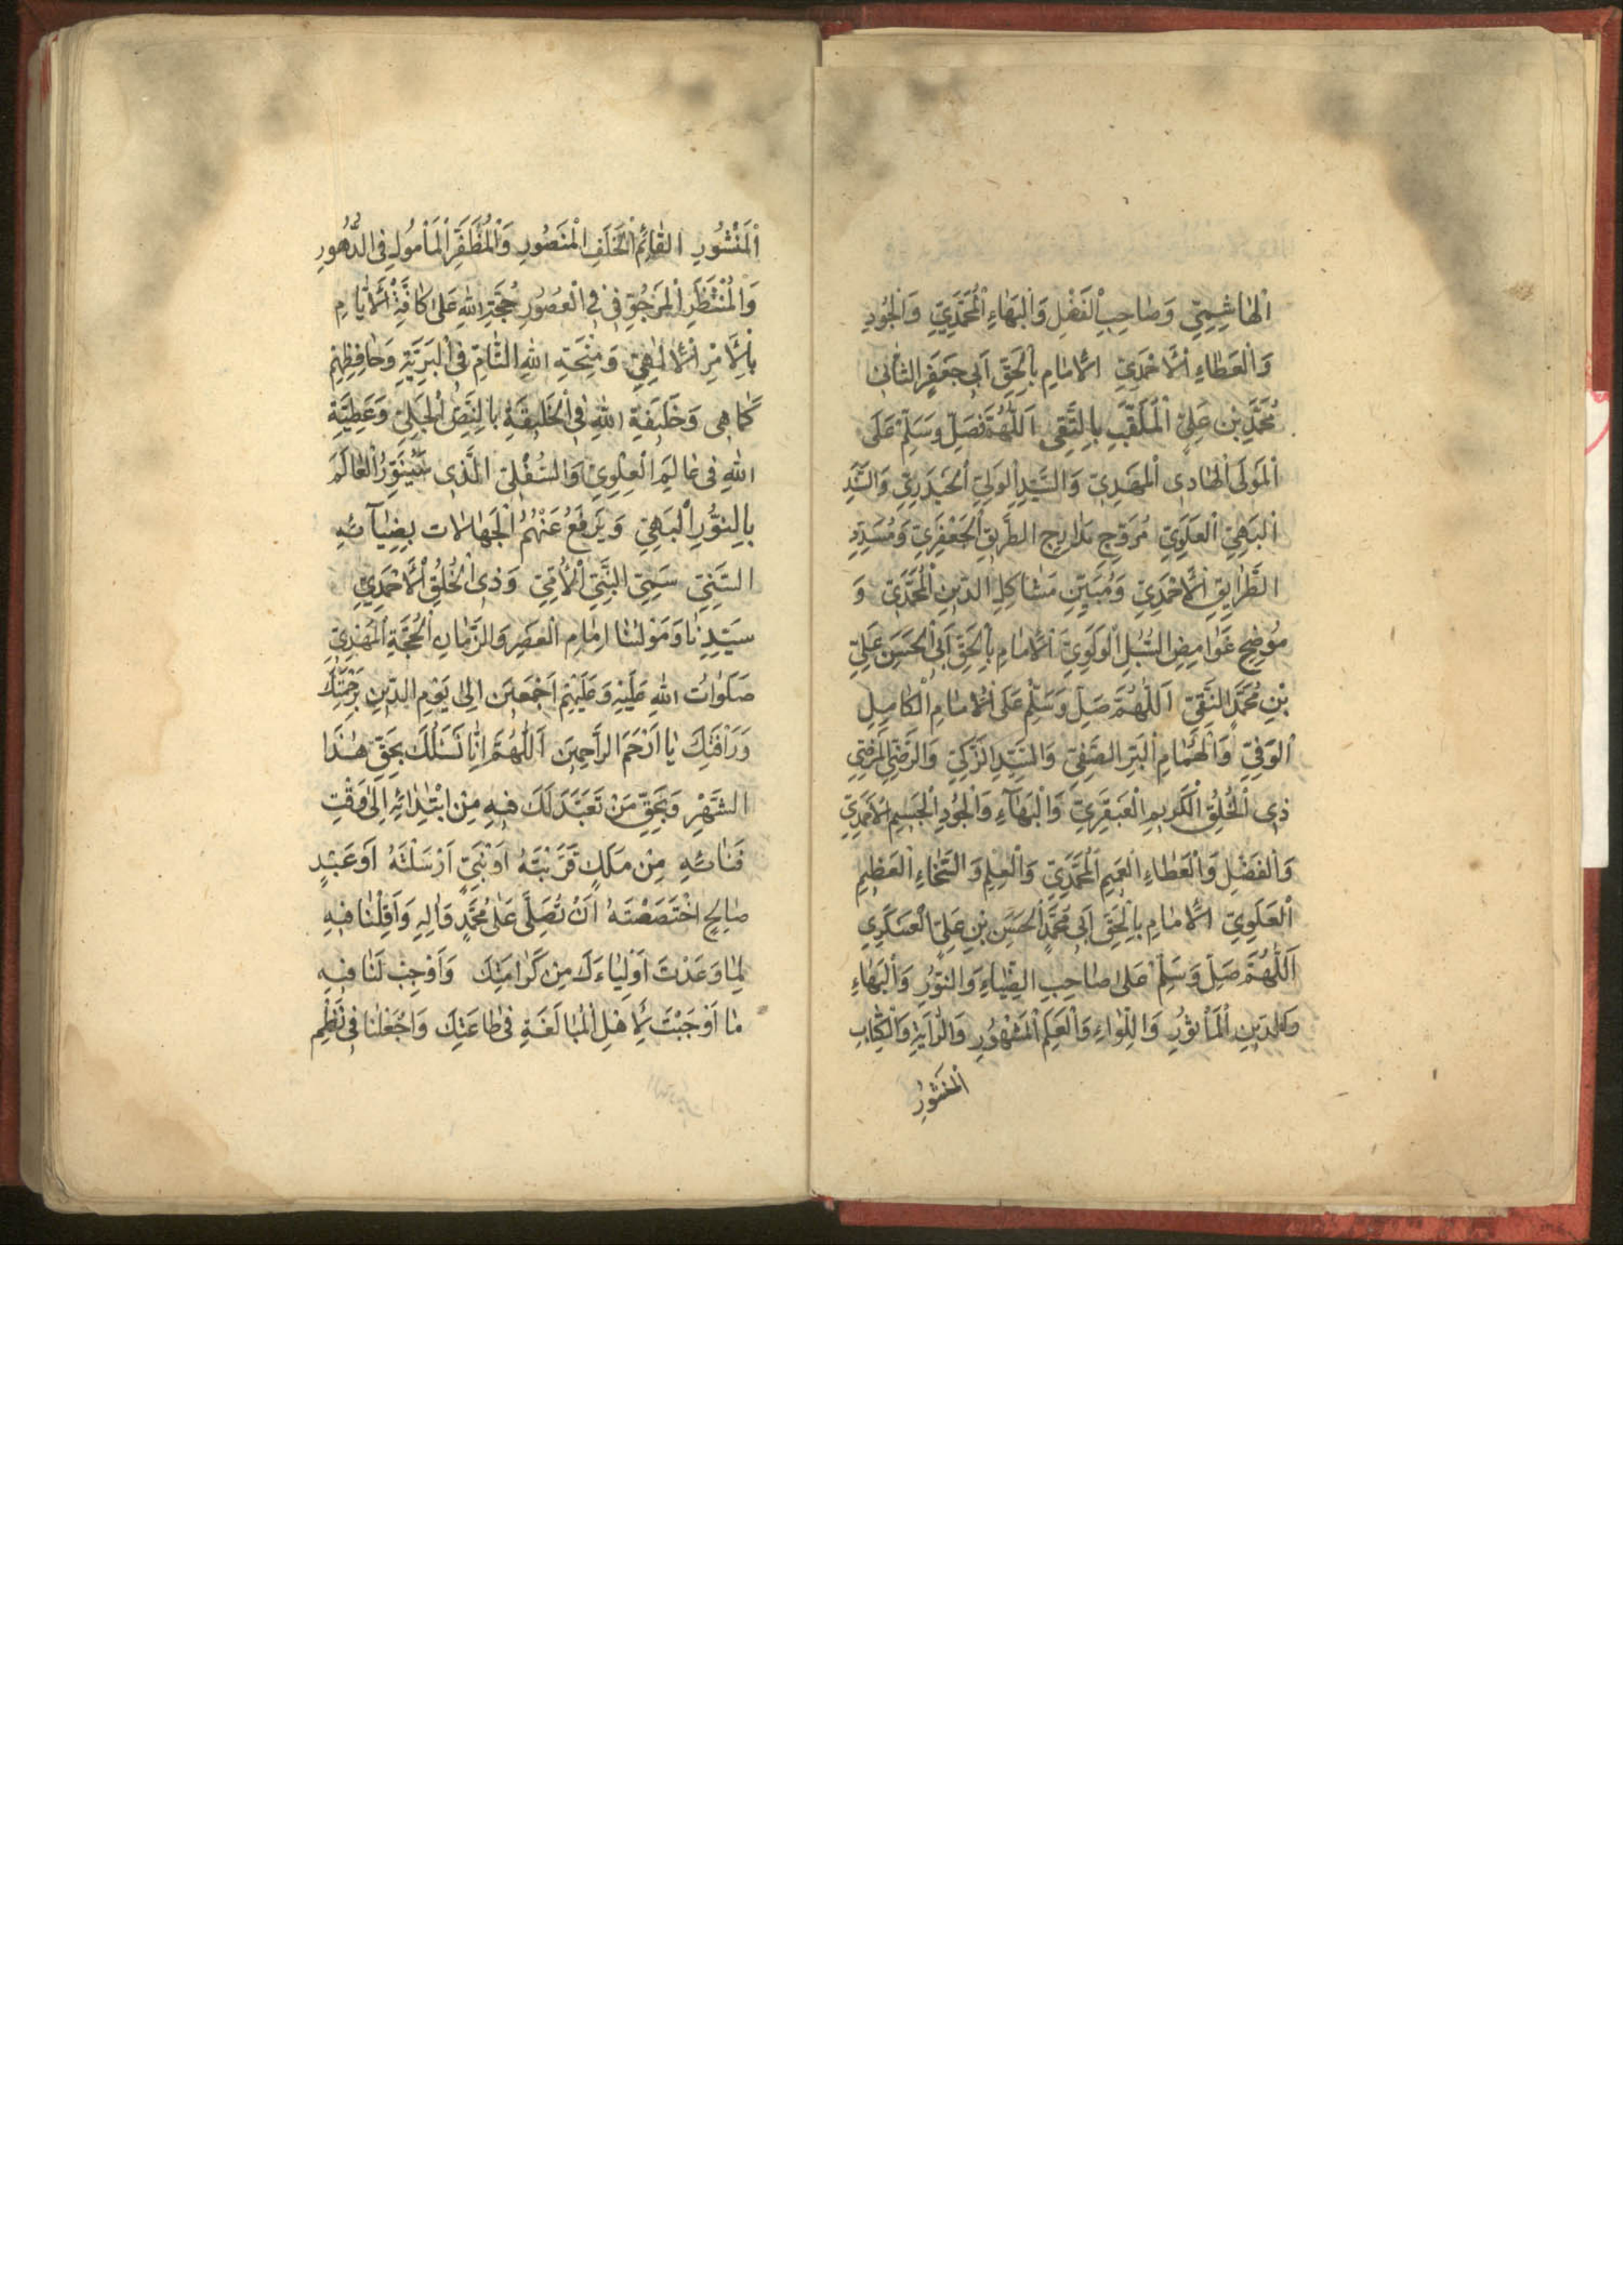 اَلْهٰاشِمِيِّ وَصٰاحِبِ الْفَضْلِ وَالْبَهٰاءِ الْمُحَمَّدِيِّ وَالْجُودِ
وَالْعَطٰاءِ الْاَحْمَدِيِّ الْاِمٰامِ بِالْحَقِّ اَبِي جَعْفَرٍ الثَّانِي
مُحَمَّدِ بْنِ عَلِيٍّ الْمُلَقَّبِ بِالتَّقِي اَللّٰهُمَّ صَلِّ وَسَلِّمْ عَلَى
الْمَوْلَى الْهٰادِي الْمَهْدِيِّ وَالسَّيِّدِ الْوَلِيِّ الْحَيْدَرِيِّ وَالسَّيِّدِ
الْبَهِيِّ الْعَلَوِيِّ مُرَوِّجِ مَدٰارِجِ الطَّرِيقِ الْجَعْفَرِيِّ وَمُسَدِّدِ
الطَّرٰايِقِ الْاَحْمَدِيِّ وَمُبَيِّنِ مَشٰاكِلِ الدِّينِ الْمُحَمَّدِيِّ وَ
مُوضِحِ غَوٰامِضِ السُّبُلِ الْاِمٰامِ بِالْحَقِّ اَبِي الْحَسَنِ عَلِيِّ
بْنِ مُحَمَّدٍ النَّقِيِّ اَللّٰهُمَّ صَلِّ وَسَلِّمْ عَلَى الْاِمٰامِ الْكٰامِلِ
الْوَفِيِّ وَالْهُمٰامِ الْبَرِّ الصَّفِيِّ وَالسَّيِّدِ الزَّكِيِّ وَالرَّضِيِّ الْمَرْضِيِّ
ذِي الْخُلُقِ الْكَرِيمِ الْعَبْقَرِيِّ وَالْبَهٰآءِ وَالْجُودِ الْجَسِيمِ الْاَحْمَدِيِّ
وَالْفَضْلِ وَالْعَطٰاءِ الْعَمِيمِ الْمُحَمَّدِيِّ وَالْعِلْمِ وَالسَّخٰاءِ الْعَظِيمِ
الْعَلَوِيِّ الْاِمٰامِ بِالْحَقِّ اَبِي مُحَمَّدٍ الْحَسَنِ بْنِ عَلِيٍّ الْعَسْكَرِي
اَللّٰهُمَّ صَلِّ وَسَلِّمْ عَلَى صٰاحِبِ الضِّيٰاءِ وَالنُّورِ وَالْبَهٰاءِ
وَالدِّينِ الْمَأْثُورِ وَاللِّوٰاءِ وَالْعَلَمِ الْمَشْهُورِ وَالرّٰايَةِ وَالْكِتٰابِ
الْمَنْشُورِ
اَلْمَنْشُورِ الْقٰائِمِ الْخَلَفِ الْمَنْصُورِ وَالْمُظَفَّرِ الْمَأْمُولِ فِي الدُّهُورِ
وَالْمُنْتَظَرِ الْمَرْجُوِّ فِي فِي الْعُصُورِ حُجَّةِ اللهِ عَلَى كٰافَّةِ الْاَيّٰامِ
بِالْاَمْرِ الْاِلٰهِيِّ وَمِنْحَةِ اللهِ التّٰامِّ فِي الْبَرِيَّةِ وَحٰافِظِهِمْ
كَمٰا هِي وَخَلِيفَةِ اللهِ فِي الْخَلِيقَةِ بِالنَّصِّ الْجَلِيِّ وَعَطِيَّةِ
اللهِ فِي عٰالَمِ الْعِلْوِيِّ وَالسُّفْلِيِّ الَّذِي سَيُنَوِّرُ الْعٰالَمَ
بِالنُّورِ الْبَهِيِّ وَيَرْفَعُ عَنْهُمُ الْجَهٰالٰات بِضِيٰآئِهِ
السَّنِيِّ سَمِيِّ النَّبِيِّ الْاُمِّيِّ وَذِي الْخُلُقِ الْاَحْمَدِيِّ
سَيِّدِنٰا وَمَوْلٰنٰا اِمٰامِ الْعَصْرِ وَالزَّمٰانِ الْحُجَّةِ الْمَهْدِيِّ
صَلَوٰاتُ اللهِ عَلَيْهِ وَعَلَيْهِمْ اَجْمَعِينَ اِلَى يَوْمِ الدِّينِ بِرَحْمَتِكَ
وَرَأْفَتِكَ يٰا اَرْحَمَ الرّٰاحِمِينَ اَللّٰهُمَّ اِنّٰا نَسْئَلُكَ بِحَقِّ هٰذَا
الشَّهْرِ وَبِحَقِّ مَنْ تَعَبَّدَ لَكَ فِيهِ مِنِ ابْتِدٰائِهِ اِلَى وَقْتِ
فَنٰائِهِ مِنْ مَلَكٍ قَرَّبْتَهُ اَوْ نَبِيٍّ اَرْسَلْتَهُ اَوْ عَبْدٍ
صٰالِحٍ اخْتَصَصْتَهُ اَنْ تُصَلِّيَ عَلَى مُحَمَّدٍ وَاٰلِهِ وَاَهِّلْنٰا فِيهِ
لِمٰا وَعَدْتَ اَوْلِيٰاءَكَ مِنْ كَرٰامَتِكَ وَاَوْجِبْ لَنٰا فِيهِ
مٰا اَوْجَبْتَ لِاَهْلِ الْمُبٰالَغَةِ فِي طٰاعَتِكَ وَاجْعَلْنٰا فِي نَظْمِ